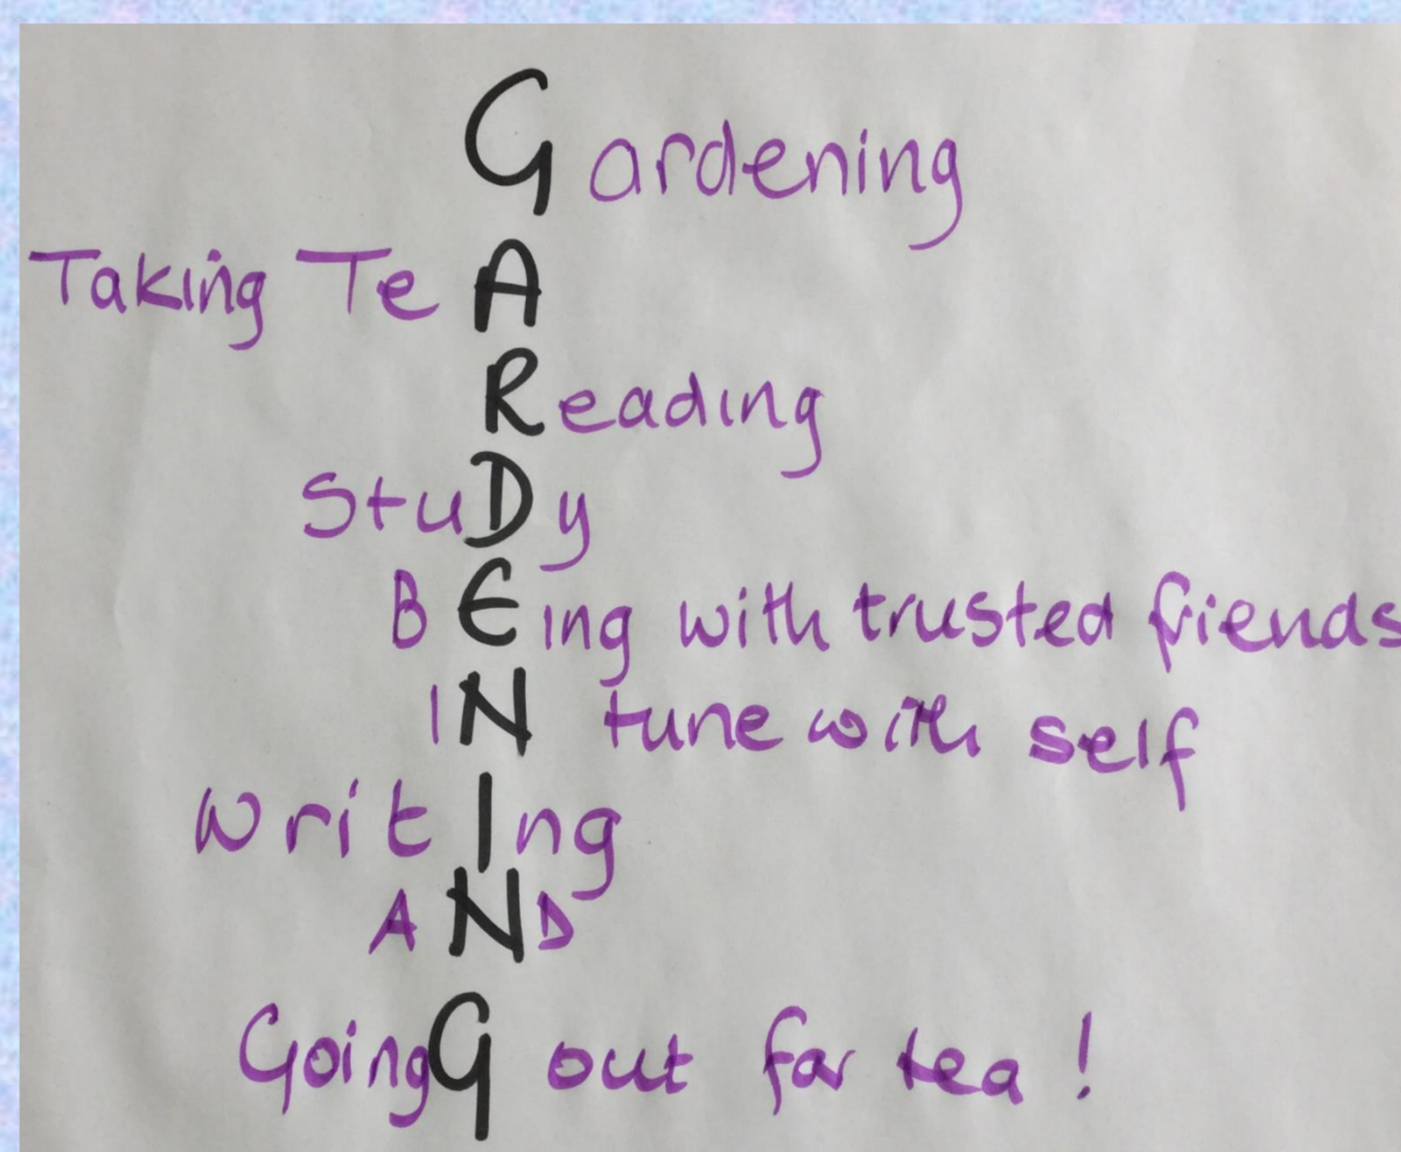 Gardening
Taking TeA
Reading
StuDy
BEing with trusted friends
IN tune with self
WritIng
AND
GoingG out for tea!